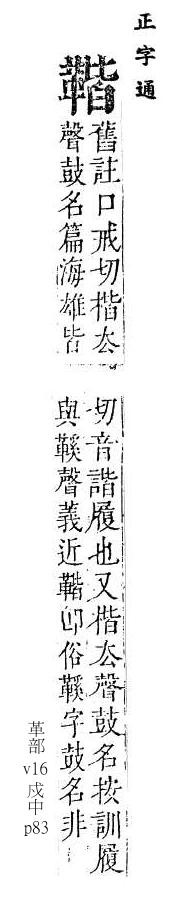 正字通
䩡
舊註口戒切楷厺
聲鼓名篇海雄皆
切音諧履也又楷厺聲鼓名按訓履
與鞵聲義近䩡卽俗鞵字鼓名非
革部
v16
戌中
p83